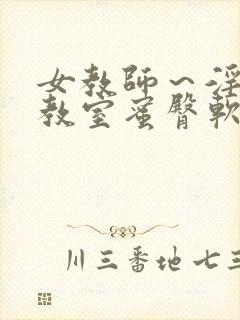 女教师～淫
教室蜜臀軟
川三番地七三